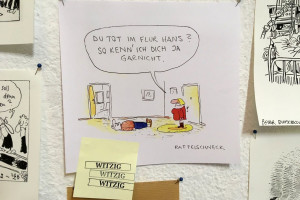 DU TOT IM FLUR HANS?
SO KENN' ICH DICH JA
GARNICHT.
RATTELSCHNECK
WITZIG
WITZIG
WITZIG